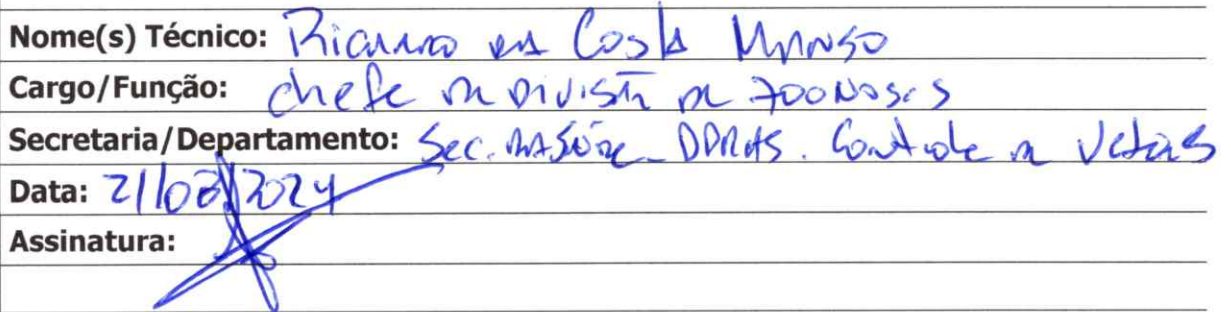 Nome(s) Técnico: Ricardo da Costa Manso
Cargo/Função: chefe da Divisão de Zoonoses
Secretaria/Departamento: Sec. da Saúde Controle de Vetores
Data: 21/08/2024
Assinatura: